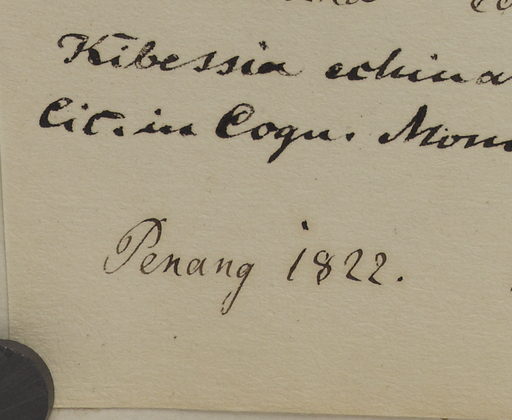 Kibessia echina
Cit. in Cogn. Mon
Penang 1822.